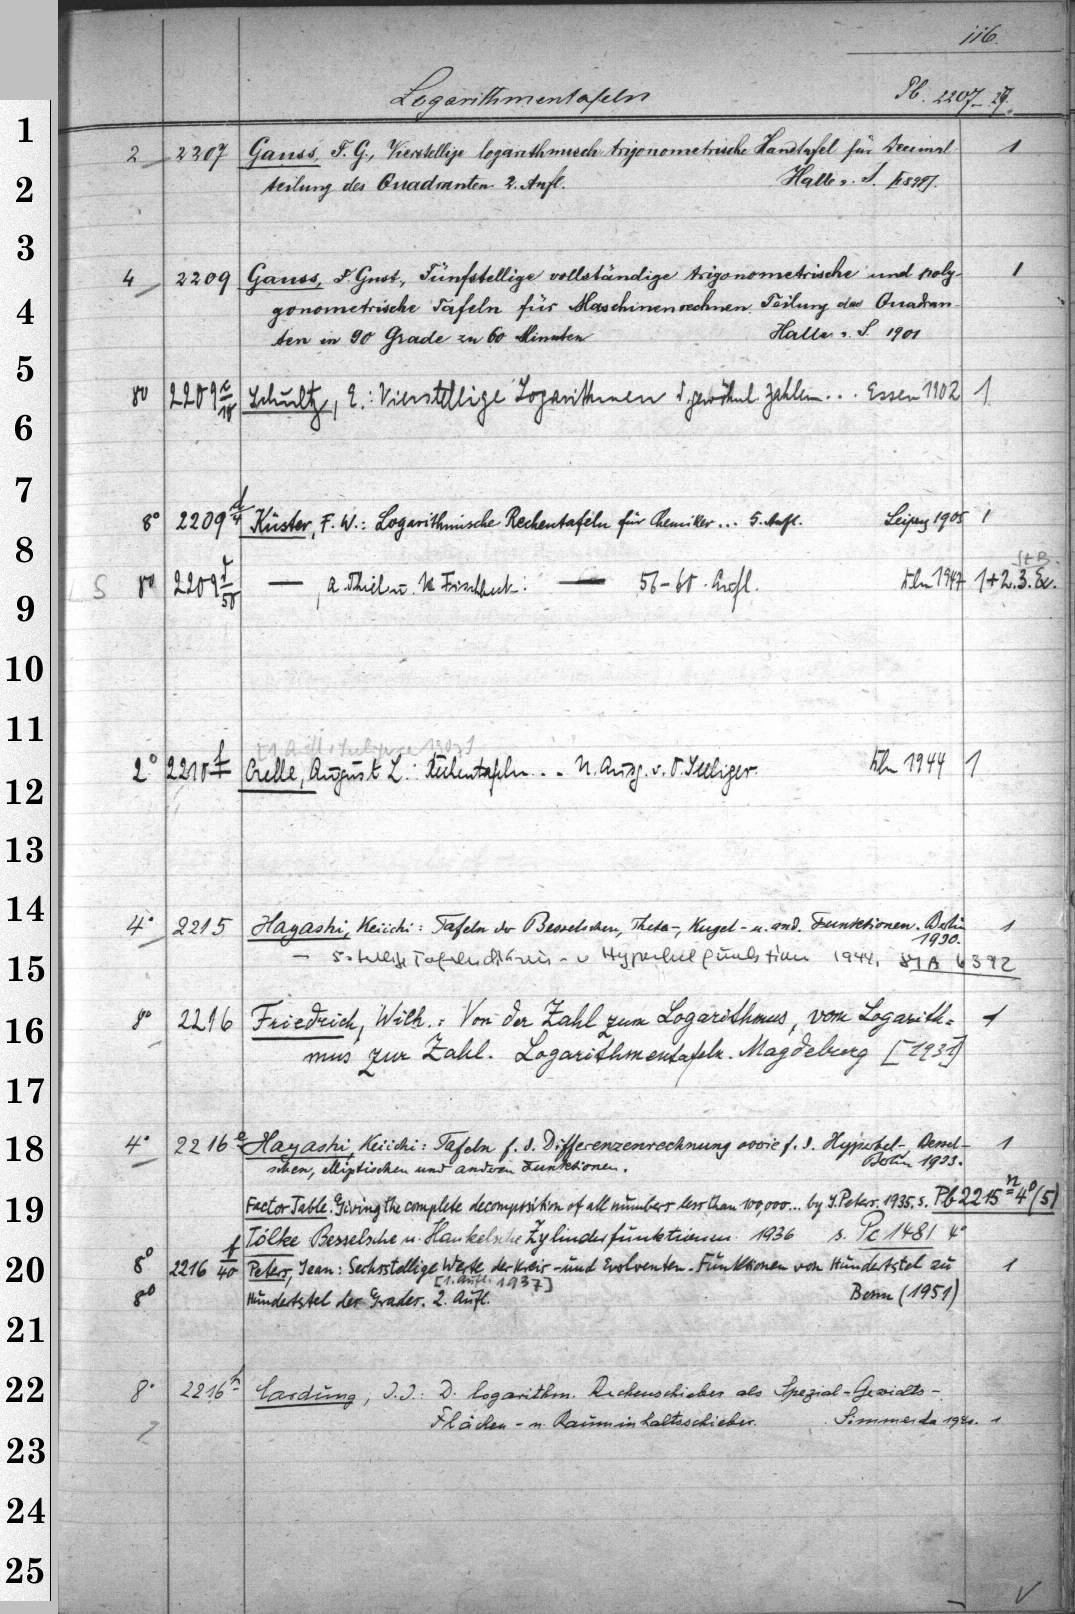 116.
Logarithmentafeln Pb. 2207-17.
1
2 2207 Gauss, F. G., Vierstellige logarithmisch-trigonometrische Handtafel für Decimal- 1
2
teilung des Quadranten 2. Aufl. Halle a. S. [1899].
3
4 2209 Gauss, F. Gust., Fünfstellige vollständige trigonometrische und poly- 1
4
gonometrische Tafeln für Maschinenrechnen. Teilung des Quadran-
ten in 90 Grade zu 60 Minuten Halle a. S. 1901
5
8° 2209 c/18 Schultz, E.: Vierstellige Logarithmen d. gewöhnl. Zahlen... Essen 1902 1
6
7
8° 2209 d/4 Küster, F. W.: Logarithmische Rechentafeln für Chemiker... 5. Aufl. Leipzig 1905 1
8
S 8° 2209 50 — , A. Thiel u. K. Fischbeck: — 56-60. Aufl. Bln 1947 1+2.3. Ex.
9
10
11
2° 2210 f Crelle, August L.: Rechentafeln... N. Ausg. v. O. Seeliger. Bln 1944 1
12
13
14
4° 2215 Hayashi, Keiichi: Tafeln der Besselschen, Theta-, Kugel- u. and. Funktionen. Berlin 1
1930.
15
— 5-stellige Tafeln d. Kreis- u Hyperbelfunktion 1944. 6392
16
8° 2216 Friedrich, Wilh.: Von der Zahl zum Logarithmus, vom Logarith= 1
mus zur Zahl. Logarithmentafeln. Magdeburg [1931]
17
18
4° 2216 a Hayashi, Keiichi: Tafeln f. d. Differenzenrechnung sowie f. d. Hyperbel- Bessel- 1
schen, elliptischen und anderen Funktionen. Berlin 1933.
19
Factor Table. Giving the complete decomposition of all numbers less than 100,000... by J. Peters. 1935. s. Pb 2215 n 4° (5)
Tölke Besselsche u. Hankelsche Zylinderfunktionen 1936 s. Pc 1481 4°
20
8° 2216 f/40 Peters, Jean: Sechsstellige Werte der Kreis- und Evolventen-Funktionen von Hundertstel zu 1
[1. Aufl. 1937]
8° Hundertstel des Grades. 2. Aufl. Bonn (1951)
21
22
8° 2216 h Cardung, J. J.: D. logarithm. Rechenschieber als Spezial-Gewichts-
Flächen- u. Rauminhaltsschieber. Sömmerda 1
23
24
25